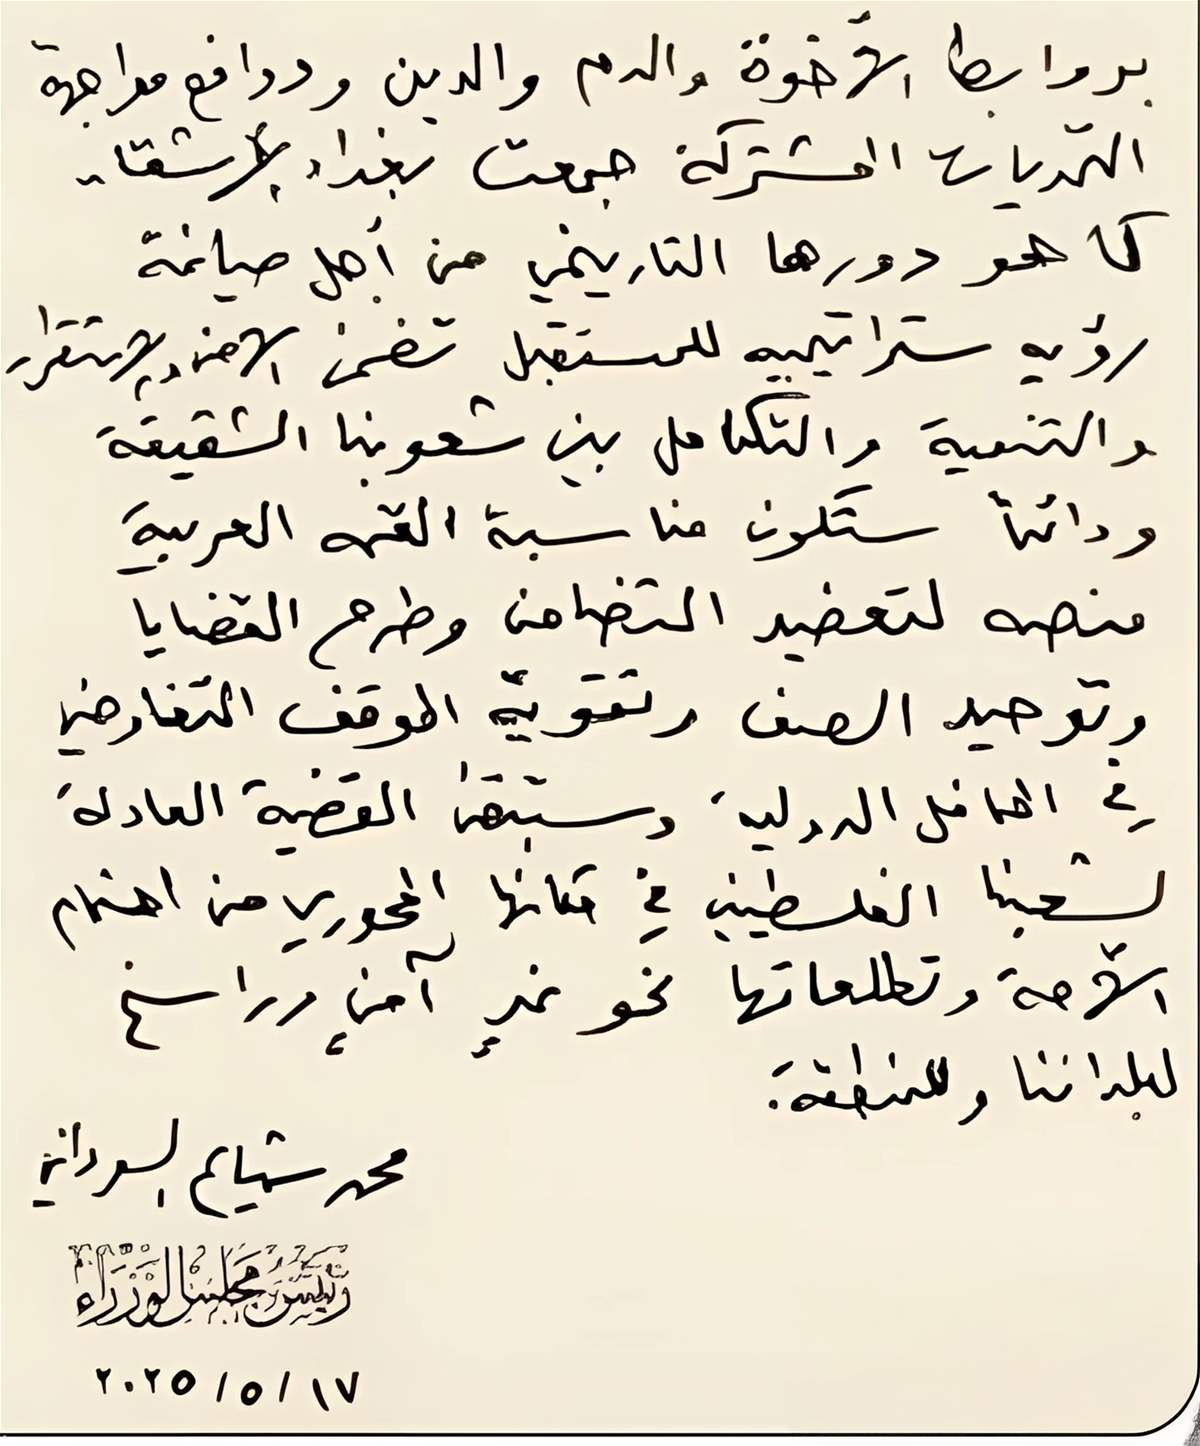 بروابط الأخوة والدم والدين ودوافع مواجهة
التحديات المشتركة جمعت بغداد الأشقاء
كما هو دورها التاريخي من أجل صياغة
رؤيه ستراتيجيه للمستقبل تضمن الأمن والاستقرار
والتنمية والتكامل بين شعوبنا الشقيقة
ودائماً ستكون مناسبة القمه العربية
منصه لتعضيد التضامن وطرح القضايا
وتوحيد الصف وتقوية الموقف التفاوضي
في المحافل الدولية وستبقى القضية العادلة
لشعبنا الفلسطيني في مكانها المحوري من اهتمام
الأمة وتطلعاتها نحو غدٍ آمنٍ وراسخ
لبلداننا وللمنطقة.
محمد شياع السوداني
رئيس مجلس الوزراء
٢٠٢٥/٥/١٧